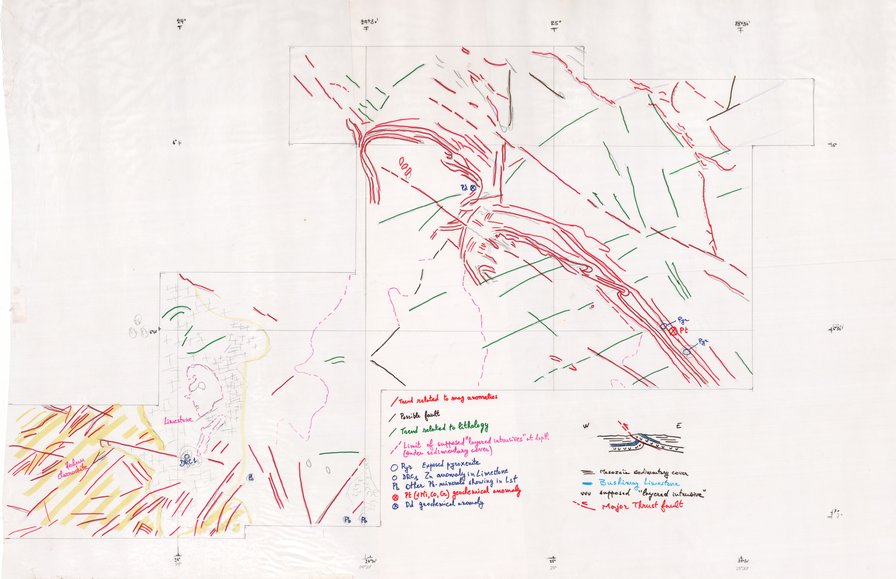 24°
24°30'
25°
25°30'
6°
Pd
Pyx
Pt
Pyx
Limestone
DRC1
Pb
Pb
Pb
Trend related to mag anomalies
Possible fault
Trend related to lithology
Limit of supposed "layered intrusives" at depth
(under sedimentary cover)
Pyx Exposed pyroxenite
DRC1 Zn anomaly in Limestone
Pb Other Pb-minerals showing in Lst
Pt (+Ni, Co, Cu) geochemical anomaly
Pd geochemical anomaly
W E
Mesozoic sedimentary cover
Bushimay Limestone
supposed "layered intrusive"
Major Thrust fault